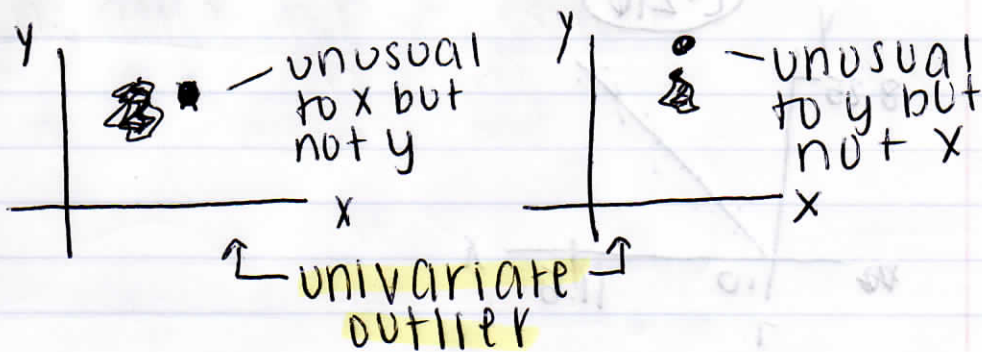 y
unusual
to x but
not y
x
y
unusual
to y but
not x
x
univariate
outlier